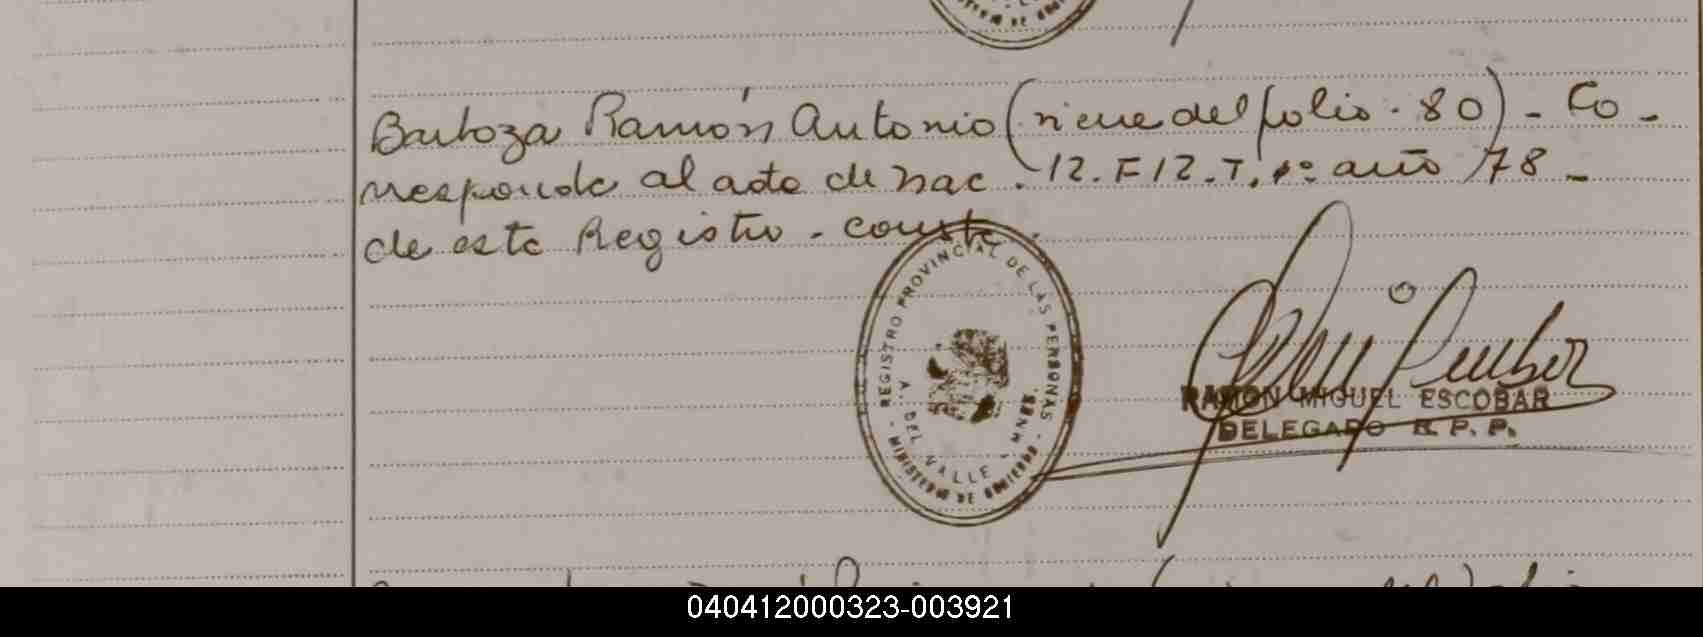 Barboza Ramón Antonio (viene del folio. 80) - Co -
rresponde al acta de nac. 12. F 12. T. 1º año 78 -
de este Registro - conste.
REGISTRO PROVINCIAL DE LAS PERSONAS
A. DEL VALLE - MNES.
- MINISTERIO DE GOBIERNO -
RAMON MIGUEL ESCOBAR
DELEGADO R. P. P.
040412000323-003921